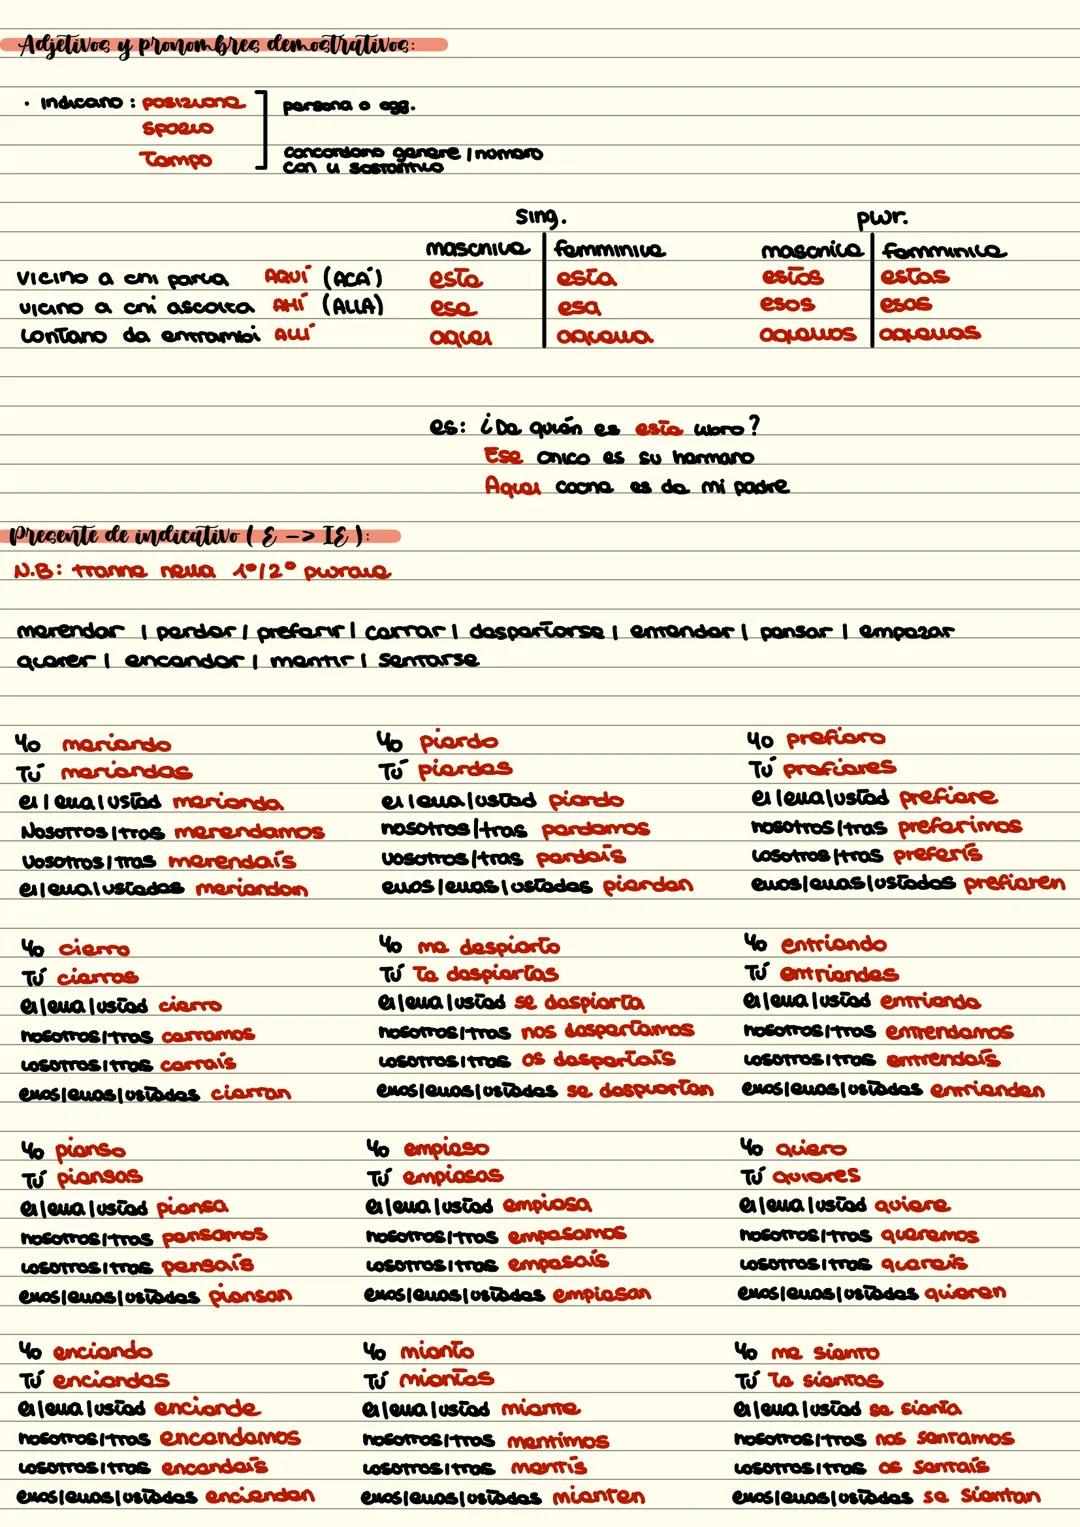 Adjetivos y pronombres demostrativos:
• indicano : posizione
spazio
Tempo
persona o ogg.
concordano genere / numero
con il sostantivo
sing. plur.
maschile femminile maschile femminile
vicino a chi parla AQUÍ (ACÁ) este esta estos estas
vicino a chi ascolta AHÍ (ALLÁ) ese esa esos esas
lontano da entrambi ALLÍ aquel aquella aquellos aquellas
es: ¿De quién es este libro?
Ese chico es su hermano
Aquel coche es de mi padre
Presente de indicativo ( E -> IE ):
N.B: tranne nella 1º/2º plurale
merendar / perder / preferir / cerrar / despertarse / entender / pensar / empezar
querer / encender / mentir / sentarse
Yo meriendo
Tú meriendas
el / ella / usted merienda
Nosotros / tras merendamos
Vosotros / tras merendais
el / ella / ustedes meriendan
Yo pierdo
Tú pierdes
el / ella / usted pierde
nosotros / tras perdemos
vosotros / tras perdeis
ellos / ellas / ustedes pierden
Yo prefiero
Tú prefieres
el / ella / usted prefiere
nosotros / tras preferimos
vosotros / tras preferís
ellos / ellas / ustedes prefieren
Yo cierro
Tú cierras
el / ella / usted cierra
nosotros / tras cerramos
vosotros / tras cerraís
ellos / ellas / ustedes cierran
Yo me despierto
Tú te despiertas
el / ella / usted se despierta
nosotros / tras nos despertamos
vosotros / tras os despertaís
ellos / ellas / ustedes se despiertan
Yo entriendo
Tú entriendes
el / ella / usted entriende
nosotros / tras entrendemos
vosotros / tras entrendeís
ellos / ellas / ustedes entrienden
Yo pienso
Tú piensas
el / ella / usted piensa
nosotros / tras pensamos
vosotros / tras pensaís
ellos / ellas / ustedes piensan
Yo empieso
Tú empiesas
el / ella / usted empiesa
nosotros / tras empesamos
vosotros / tras empesaís
ellos / ellas / ustedes empiesan
Yo quiero
Tú quieres
el / ella / usted quiere
nosotros / tras queremos
vosotros / tras quereis
ellos / ellas / ustedes quieren
Yo enciendo
Tú enciendes
el / ella / usted enciende
nosotros / tras encendemos
vosotros / tras encendeís
ellos / ellas / ustedes encienden
Yo miento
Tú mientes
el / ella / usted miente
nosotros / tras mentimos
vosotros / tras mentís
ellos / ellas / ustedes mienten
Yo me siento
Tú te sientas
el / ella / usted se sienta
nosotros / tras nos sentamos
vosotros / tras os sentaís
ellos / ellas / ustedes se sientan